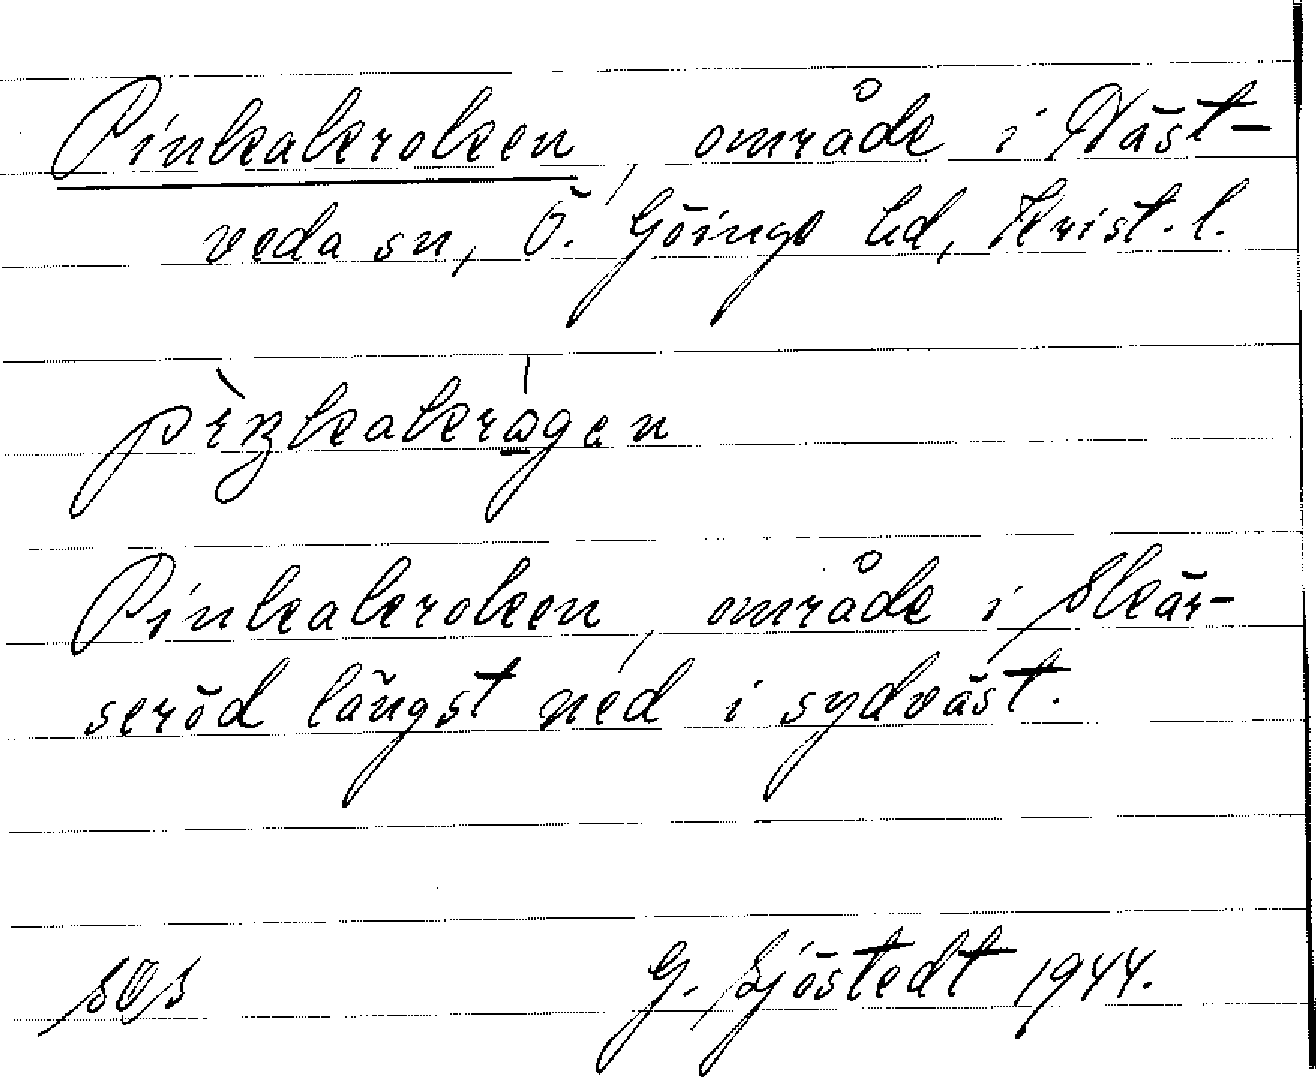 Pinkakroken, område i Näst-
veda sn, Ö. Göinge hd, Krist. l.
pìŋkakrógen
Pinkakroken, område i Skär-
seröd längst ned i sydväst.
G. Sjöstedt 1944.